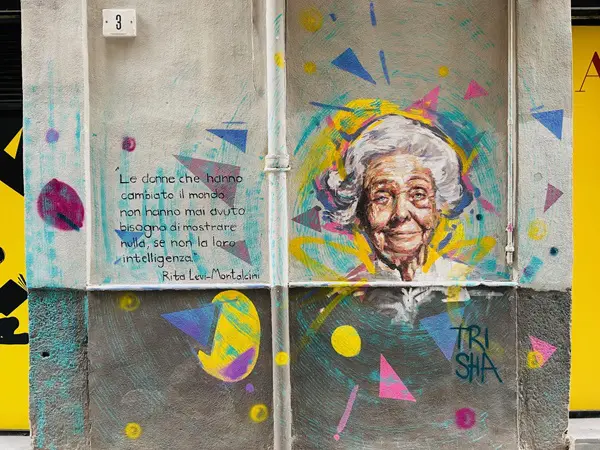 3
"Le donne che hanno
cambiato il mondo
non hanno mai avuto
bisogno di mostrare
nulla, se non la loro
intelligenza."
Rita Levi-Montalcini
TRI
SHA
A